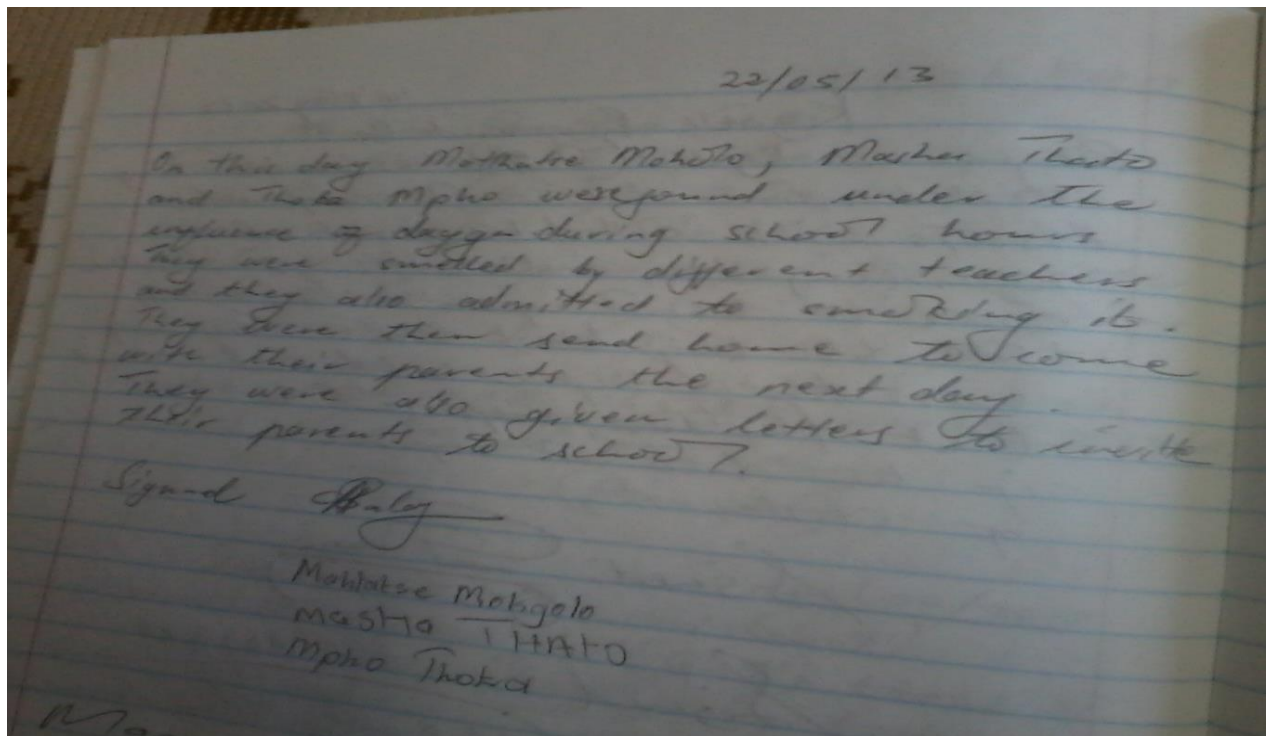 22/05/13
On this day Mothatse Moholo, Masha Thato
and Thoka Mpho were found under the
influence of dagga during school hours
They were smelled by different teachers
and they also admitted to smoking it.
They were then send home to come
with their parents the next day.
They were also given letters to invite
their parents to school.
Signed
Mahlatse Mohgolo
Masha THATO
Mpho Thoka